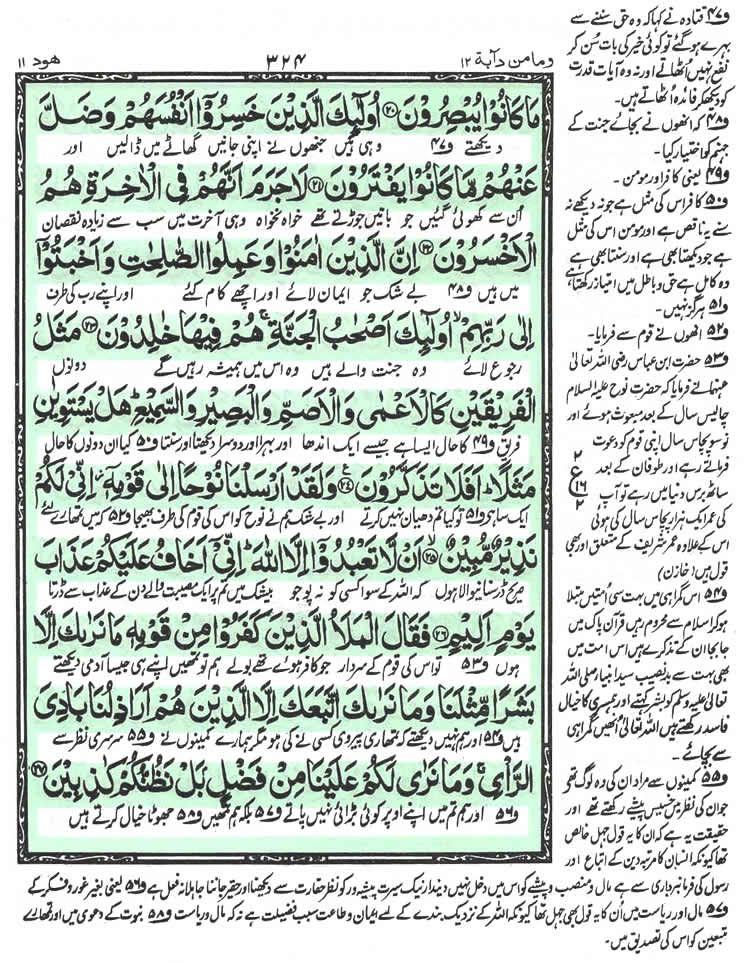 وما من دآبة ۱۲
۳۲۴
ھود ۱۱
مَا كَانُوۡا يُبۡصِرُوۡنَ ﴿۲۰﴾ اُولٰٓئِكَ الَّذِيۡنَ خَسِرُوۡۤا اَنۡفُسَهُمۡ وَضَلَّ
دیکھتے و۴۷ وہی ہیں جنھوں نے اپنی جانیں گھاٹے میں ڈالیں اور
عَنۡهُمۡ مَّا كَانُوۡا يَفۡتَرُوۡنَ ﴿۲۱﴾ لَا جَرَمَ اَنَّهُمۡ فِى الۡاٰخِرَةِ هُمُ
اُن سے کھوئی گئیں جو باتیں جوڑتے تھے خواہ نخواہ وہی آخرت میں سب سے زیادہ نقصان
الۡاَخۡسَرُوۡنَ ﴿۲۲﴾ اِنَّ الَّذِيۡنَ اٰمَنُوۡا وَعَمِلُوا الصّٰلِحٰتِ وَاَخۡبَتُوۡۤا
میں ہیں و۴۸ بے شک جو ایمان لائے اور اچھے کام کئے اور اپنے رب کی طرف
اِلٰى رَبِّهِمۡۙ اُولٰٓئِكَ اَصۡحٰبُ الۡجَـنَّةِۚ هُمۡ فِيۡهَا خٰلِدُوۡنَ ﴿۲۳﴾ مَثَلُ
رجوع لائے وہ جنت والے ہیں وہ اس میں ہمیشہ رہیں گے دونوں
الۡفَرِيۡقَيۡنِ كَالۡاَعۡمٰى وَالۡاَصَمِّ وَالۡبَصِيۡرِ وَالسَّمِيۡعِؕ هَلۡ يَسۡتَوِيٰنِ
فریق و۴۹ کا حال ایسا ہے جیسے ایک اندھا اور بہرا اور دوسرا دیکھتا اور سنتا و۵۰ کیا ان دونوں کا حال
مَثَلًاؕ اَفَلَا تَذَكَّرُوۡنَ ﴿۲۴﴾ وَلَـقَدۡ اَرۡسَلۡنَا نُوۡحًا اِلٰى قَوۡمِهٖۤ اِنِّىۡ لَـكُمۡ
ایک سا ہے و۵۱ تو کیا تم دھیان نہیں کرتے اور بے شک ہم نے نوح کو اس کی قوم کی طرف بھیجا و۵۲ کہ میں تمھارے لئے
نَذِيۡرٌ مُّبِيۡنٌۙ ﴿۲۵﴾ اَنۡ لَّا تَعۡبُدُوۡۤا اِلَّا اللّٰهَؕ اِنِّىۡۤ اَخَافُ عَلَيۡكُمۡ عَذَابَ
صریح ڈر سنانیوالا ہوں کہ اللہ کے سوا کسی کو نہ پوجو بیشک میں تم پر ایک مصیبت والے دن کے عذاب سے ڈرتا
يَوۡمٍ اَلِيۡمٍ ﴿۲۶﴾ فَقَالَ الۡمَلَاُ الَّذِيۡنَ كَفَرُوۡا مِنۡ قَوۡمِهٖ مَا نَرٰٮكَ اِلَّا
ہوں و۵۳ تو اس کی قوم کے سردار جو کافر ہوئے تھے بولے ہم تو تمھیں اپنے ہی جیسا آدمی دیکھتے
بَشَرًا مِّثۡلَنَا وَمَا نَرٰٮكَ اتَّبَعَكَ اِلَّا الَّذِيۡنَ هُمۡ اَرَاذِلُـنَا بَادِىَ
ہیں و۵۴ اور ہم نہیں دیکھتے کہ تمھاری پیروی کسی نے کی ہو مگر ہمارے کمینوں نے و۵۵ سرسری نظر سے
الرَّاۡىِۚ وَمَا نَرٰى لَـكُمۡ عَلَيۡنَا مِنۡ فَضۡلٍۢ بَلۡ نَظُنُّكُمۡ كٰذِبِيۡنَ ﴿۲۷﴾
و۵۶ اور ہم تم میں اپنے اوپر کوئی بڑائی نہیں پاتے و۵۷ بلکہ ہم تمھیں و۵۸ جھوٹا خیال کرتے ہیں
و۴۷ قتادہ نے کہا کہ وہ حق سننے سے
بہرے ہوگئے تو کوئی خیر کی بات سُن کر
نفع نہیں اُٹھاتے اور نہ وہ آیات قدرت
کو دیکھ کر فائدہ اُٹھاتے ہیں۔
و۴۸ کہ انھوں نے بجائے جنت کے
جہنم کو اختیار کیا۔
و۴۹ یعنی کافر اور مومن۔
و۵۰ کافر اس کی مثل ہے جو نہ دیکھے نہ
سنے یہ ناقص ہے اور مومن اس کی مثل
ہے جو دیکھتا بھی ہے اور سنتا بھی ہے
وہ کامل ہے حق و باطل میں امتیاز رکھتا ہے
و۵۱ ہرگز نہیں۔
و۵۲ انھوں نے قوم سے فرمایا۔
و۵۳ حضرت ابن عباس رضی اللہ تعالیٰ
عنہما نے فرمایا کہ حضرت نوح علیہ السلام
چالیس سال کے بعد مبعوث ہوئے اور
نو سو پچاس سال اپنی قوم کو دعوت
فرماتے رہے اور طوفان کے بعد
ساٹھ برس دنیا میں رہے تو آپ
کی عمر ایک ہزار پچاس سال کی ہوئی
اس کے علاوہ عمر شریف کے متعلق اور بھی
قول ہیں (خازن)
و۵۴ اس گمراہی میں بہت سی اُمتیں مبتلا
ہو کر اسلام سے محروم رہیں قرآن پاک میں
جا بجا ان کے تذکرے ہیں اس امت میں
بھی بہت سے بدنصیب سید انبیاء صلی اللہ
تعالیٰ علیہ وسلم کو بشر کہتے اور ہمسری کا خیال
فاسد رکھتے ہیں اللہ تعالیٰ انھیں گمراہی
سے بچائے۔
و۵۵ کمینوں سے مراد ان کی وہ لوگ تھے
جو ان کی نظر میں خسیس پیشے رکھتے تھے اور
حقیقت یہ ہے کہ ان کا یہ قول جہل خالص
تھا کیونکہ انسان کا مرتبہ دین کے اتباع اور
رسول کی فرمانبرداری سے ہے مال و منصب و پیشے کو اس میں دخل نہیں دیندار نیک سیرت پیشہ ور کو نظر حقارت سے دیکھنا اور حقیر جاننا جاہلانہ فعل ہے و۵۶ یعنی بغیر غور و فکر کے
و۵۷ مال اور ریاست میں اُن کا یہ قول بھی جہل تھا کیونکہ اللہ کے نزدیک بندے کے لئے ایمان و طاعت سبب فضیلت ہے نہ کہ مال و ریاست و۵۸ نبوت کے دعویٰ میں اور تمھارے
متبعین کو اس کی تصدیق میں۔
۲
ع
۱۶
۲